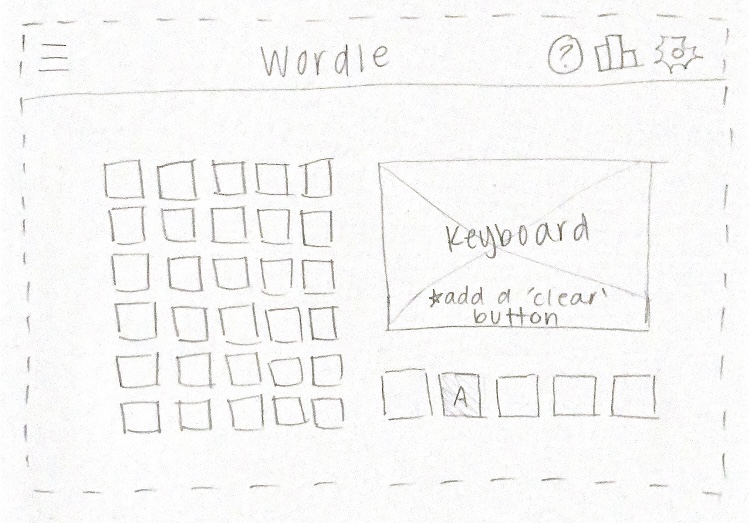 Wordle
?
Keyboard
*add a 'clear'
button
A